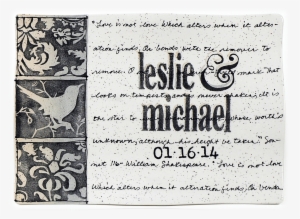 "Love is not love Which alters when it alter-
ation finds, Or bends with the remover to
remove. mark that
looks on tempests and is never shaken; It is
the star to every wandering whose worth's
unknown, although his height be taken." Son-
net 116- William Shakespeare. "Love is not Love
Which alters when it alteration finds, Or bends
leslie &
michael
01·16·14